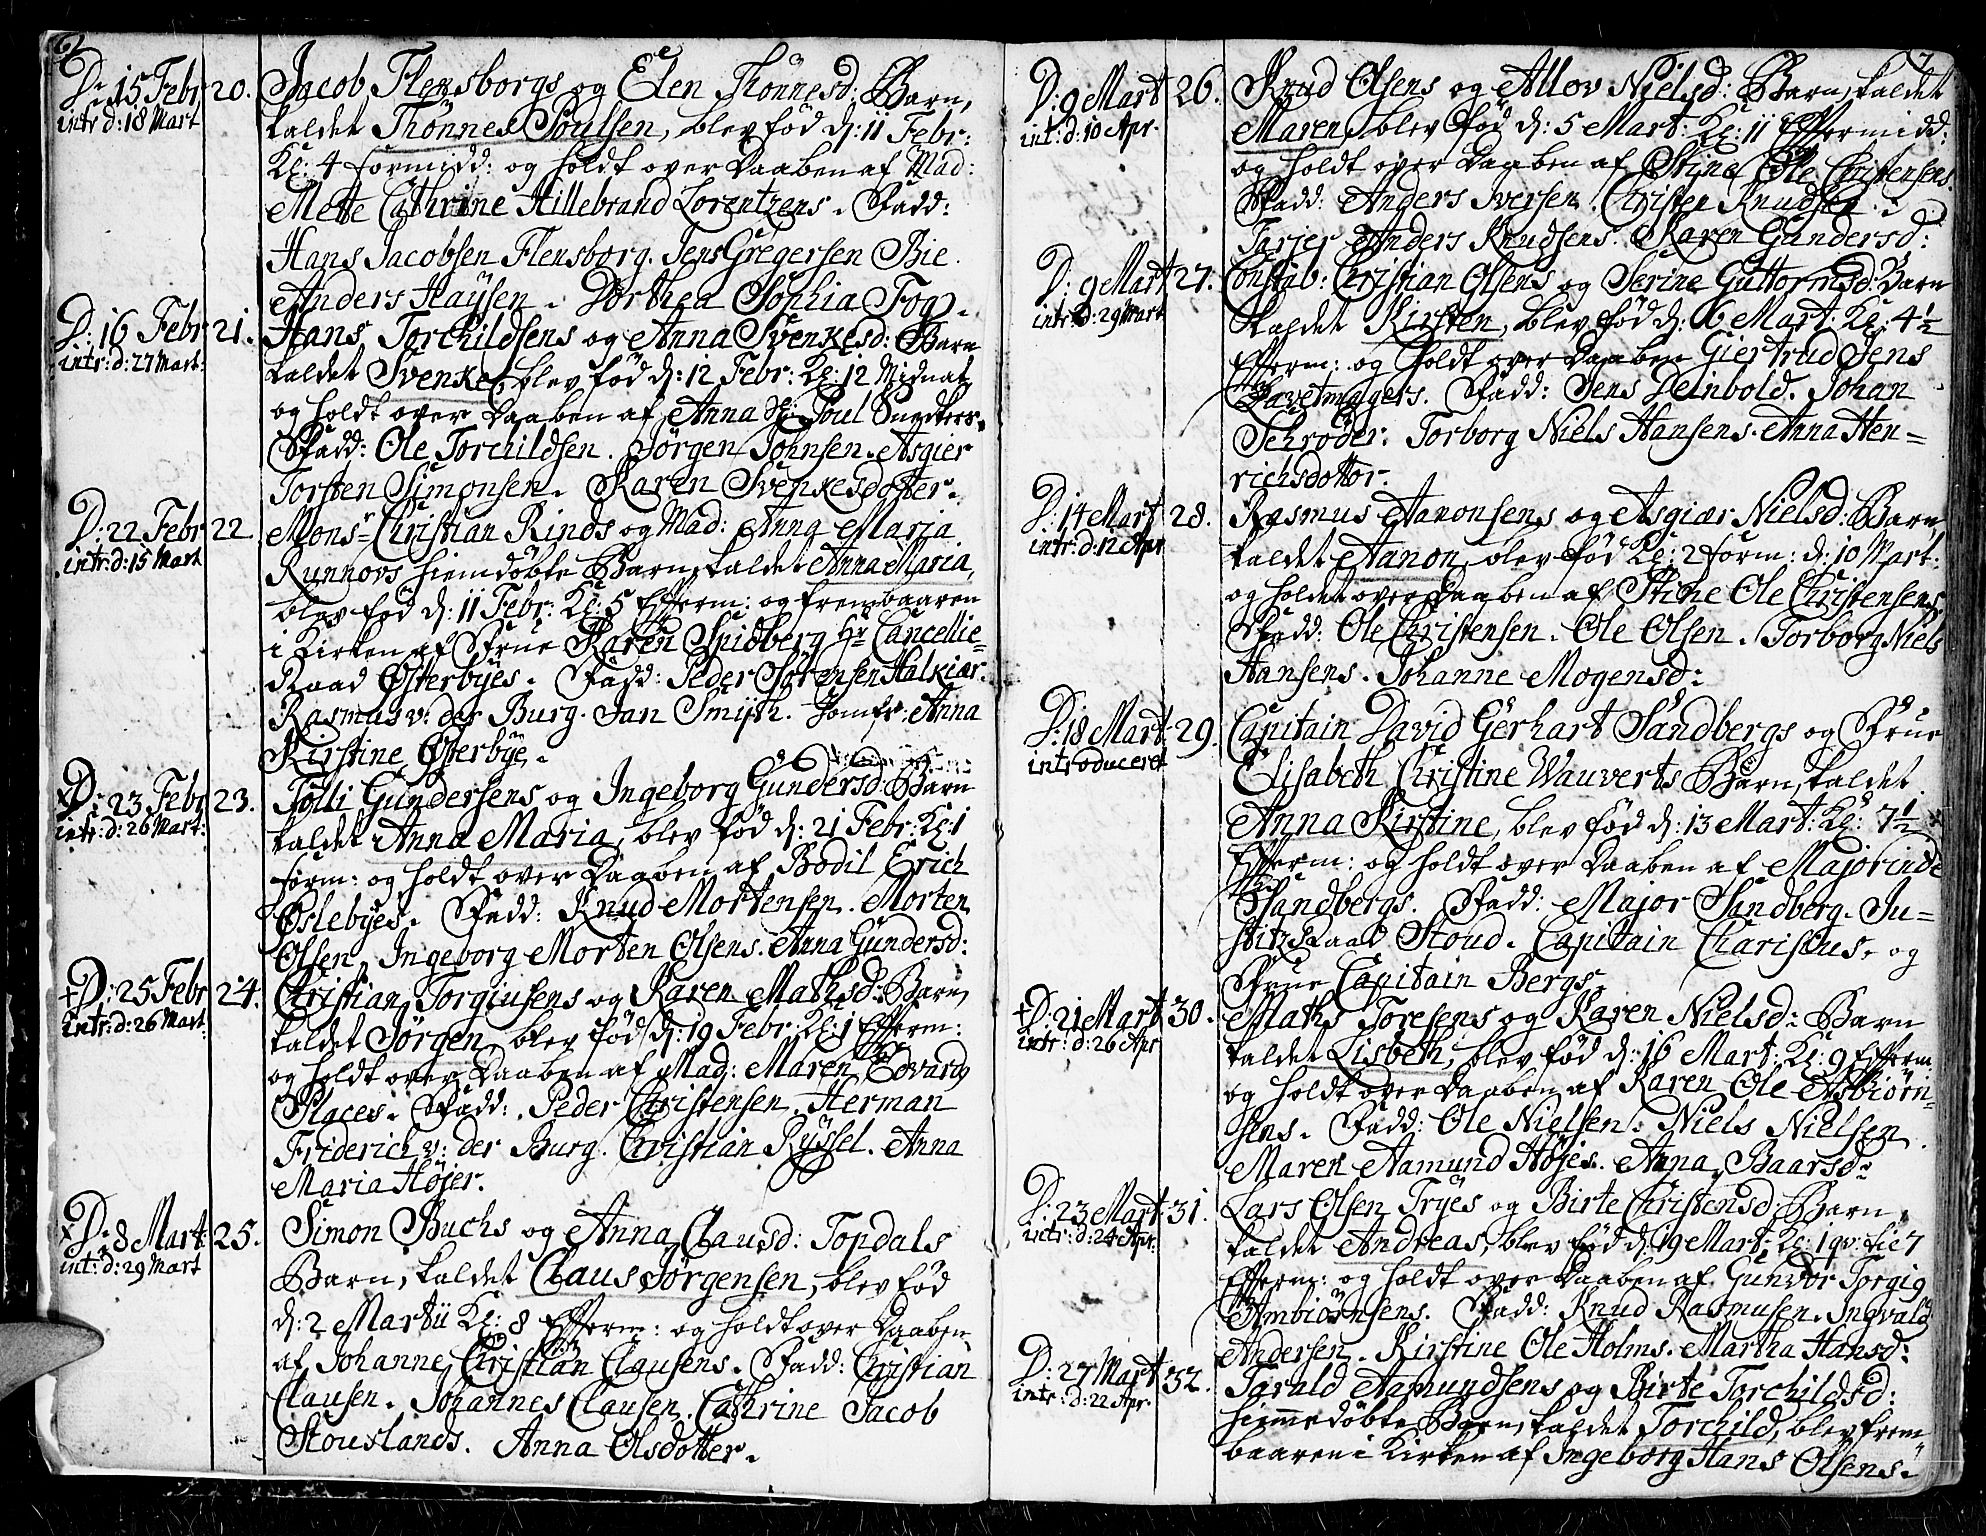 6
D: 15 Febr 20. Jacob Flensborgs og Elen Thönnesd: Barn,
intr d: 18 Mart kaldet Thönnes Poulsen, blev fød d: 11 Febr:
Kl: 4 formidd: og holdt over Daaben af Mad:
Mette Cathrine Hillebrand Lorentzens. Fadd:
Hans Jacobsen Flensborg. Jens Gregersen Bie.
Anders Haÿsen. Dorthea Sophia Fog.
D: 16 Febr 21. Hans Torchildsens og Anna Svenkesd: Barn
intr: d: 27 Mart: kaldet Svenke, blev fød d: 12 Febr: Kl: 12 Midnat,
og holdt over Daaben af Anna Sl: Poul Snedkers.
Fadd: Ole Torchildsen. Jörgen Johnsen. Asgier
Torsten Simonsen. Karen Svenkesdotter.
D: 22 Febr 22. Monsr Christian Rinds og Mad: Anna Maria
intr: d: 15 Mart Runnovs hiemdöbte Barn, kaldet Anna Maria,
blev fød d: 11 Febr: Kl: 5 Efterm: og frembaaren
i Kirken af Frue Karen Spidberg Hr Cancellie-
Raad Østerbÿes. Fadd: Peder Sørensen Halkiær.
Rasmus v: der Burg. Jan Smÿth. Jomfr: Anna
Kirstine Østerbÿe.
D: 23 Febr 23. Tolli Gundersens og Ingeborg Gundersd: Barn
intr: d: 26 Mart: kaldet Anna Maria, blev fød d: 21 Febr: Kl: 1
form: og holdt over Daaben af Bodil Erich
Oslebÿes. Fadd: Knud Mortensen. Morten
Olsen, Ingeborg Morten Olsens. Anna Gundersd:
+ D: 25 Febr 24. Christian Torgiusens og Karen Mathsd: Barn,
intr: d: 26 Mart: kaldet Jörgen, blev fød d: 19 Febr: Kl: 1 Efterm:
og holdt over Daaben af Mad: Maren Edvard
Places. Fadd: Peder Christensen. Herman
Friderich v: der Burg. Christian Rÿssel. Anna
Maria Höjer.
D: 8 Mart: 25. Simon Buchs og Anna Clausd: Topdals
int: d: 29 Mart Barn, kaldet Claus Jörgensen, blev fød
d: 2 Martii Kl: 8 Efterm: og holdt over Daaben
af Johanne Christian Clausens. Fadd: Christian
Clausen. Johannes Clausen. Cathrine Jacob
Stouslands. Anna Olsdotter.
7
D: 9 Mart 26. Knud Olsens og Allov Nielsd: Barn, kaldet
int: d: 10 Apr. Maren, blev fød d: 5 Mart: Kl: 11 Eftermidd:
og holdt over Daaben af Stine Ole Christensens.
Fadd: Anders Iversen. Christen Knudsen.
Tarjer Anders Knudsens. Karen Gundersd:
D: 9 Mart 27. Constab: Christian Olsens og Serine Guttormsd: Barn
intr: d: 29 Mart kaldet Kirsten, blev fød d: 6 Mart: Kl: 4½
Efterm: og holdt over Daaben Giertrud Jens
Havetmagers. Fadd: Jens Deinbold. Johan
Schrøder. Torborg Niels Hansens. Anna Hen-
richsdotter.
D: 14 Mart 28. Rasmus Aanonsens og Asgiær Nielsd: Barn,
intr: d: 12 Apr kaldet Aanon, blev fød Kl: 2 form: d: 10 Mart:
og holdet over Daaben af Stine Ole Christensens.
Fadd: Ole Christensen. Ole Olsen. Torborg Niels
Hansens. Johanne Mogensd:
D: 18 Mart: 29. Capitain David Gerhart Sandbergs og Frue
introduceret Elisabeth Christine Wauverts Barn, kaldet
Anna Kirstine, blev fød d: 13 Mart: Kl: 7½
Efterm: og holdt over Daaben af Majorinde
Sandbergs. Fadd: Major Sandberg. Ju-
stitz Raad Stoud. Capitain Charisius. og
Frue Capitain Bergs.
+ D: 21 Mart 30. Maths Toresens og Karen Nielsd: Barn
intr: d: 26 Apr kaldet Lisbeth, blev fød d: 16 Mart: Kl: 9 Efterm:
og holdt over Daaben af Karen Ole Asbiørn-
sens. Fadd: Ole Nielsen. Niels Nielsen
Maren Aamund Höjes. Anna Baarsd:
D: 23 Mart: 31. Lars Olsen Trÿes og Birte Christensd: Barn,
intr: d: 24 Apr: kaldet Andreas, blev fød d: 19 Mart: Kl: 1 qv: til 7
Efterm: og holdt over Daaben af Gunvor Torgis
Ambiörnsens. Fadd: Knud Rasmusen. Ingvald
Andersen. Kirstine Ole Holms. Martha Hansd:
D: 27 Mart 32. Tarald Aamundsens og Birte Torchildsd:
intr: d: 22 Apr: hiemmedöbte Barn, kaldet Torchild, blev frem-
baaren i Kirken af Ingeborg Hans Olsens.